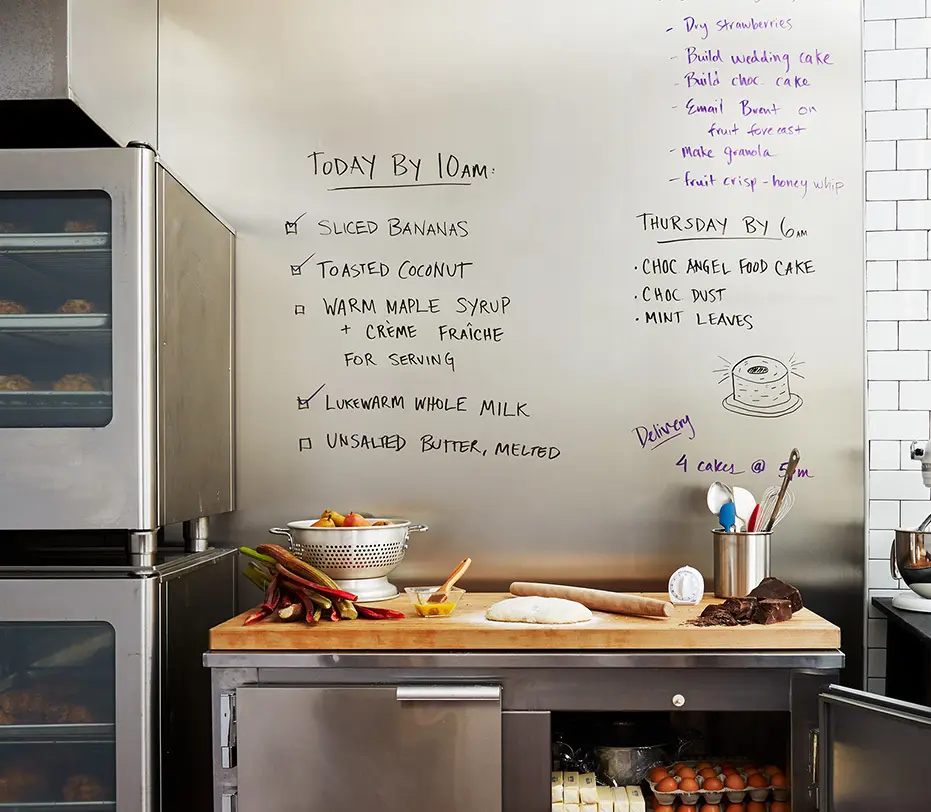 TODAY BY 10AM:
SLICED BANANAS
TOASTED COCONUT
WARM MAPLE SYRUP
+ CRÈME FRAÎCHE
FOR SERVING
LUKEWARM WHOLE MILK
UNSALTED BUTTER, MELTED
- Dry strawberries
- Build wedding cake
- Build choc cake
- Email Brent on
fruit forecast
- Make granola
- fruit crisp - honey whip
THURSDAY BY 6AM
· CHOC ANGEL FOOD CAKE
· CHOC DUST
· MINT LEAVES
Delivery
4 cakes @ 5pm